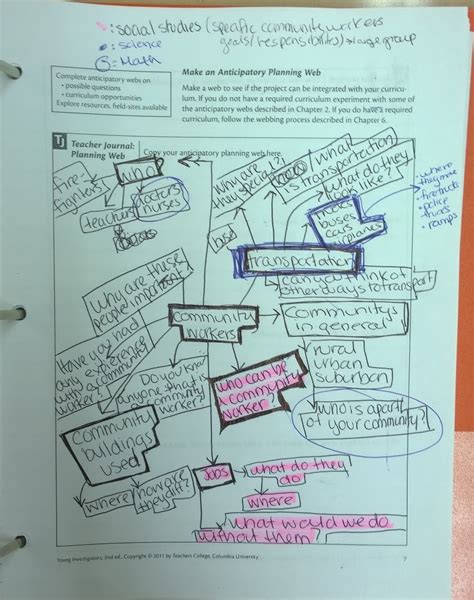 : social studies (specific community workers
goals/responsibilities) → large group
: science
: Math
Complete anticipatory webs on
• possible questions
• curriculum opportunities
Explore resources, field-sites available
Make an Anticipatory Planning Web
Make a web to see if the project can be integrated with your curricu-
lum. If you do not have a required curriculum experiment with some of
the anticipatory webs described in Chapter 2. If you do have a required
curriculum, follow the webbing process described in Chapter 6.
TJ Teacher Journal:
Planning Web
Copy your anticipatory planning web here.
who
fire-
fighters
teachers
doctors
nurses
why are
they special?
what
is transportation
what do they
look like?
buses
cars
airplanes
• where
they
• firetrucks
• police
• ramps
transportation
can you think of
other ways to transport
why are these
people important?
community
workers
communitys
in general
rural
urban
suburban
who is apart
of your community?
Have you had
any experience
with a community
worker
Do you know
anyone that is
a community
worker?
who can be
a community
worker?
community
buildings
used
where
how are
they diff?
jobs
what do they
do
where
what would we do
without them?
Young Investigators, 2nd ed., Copyright © 2011 by Teachers College, Columbia University
7